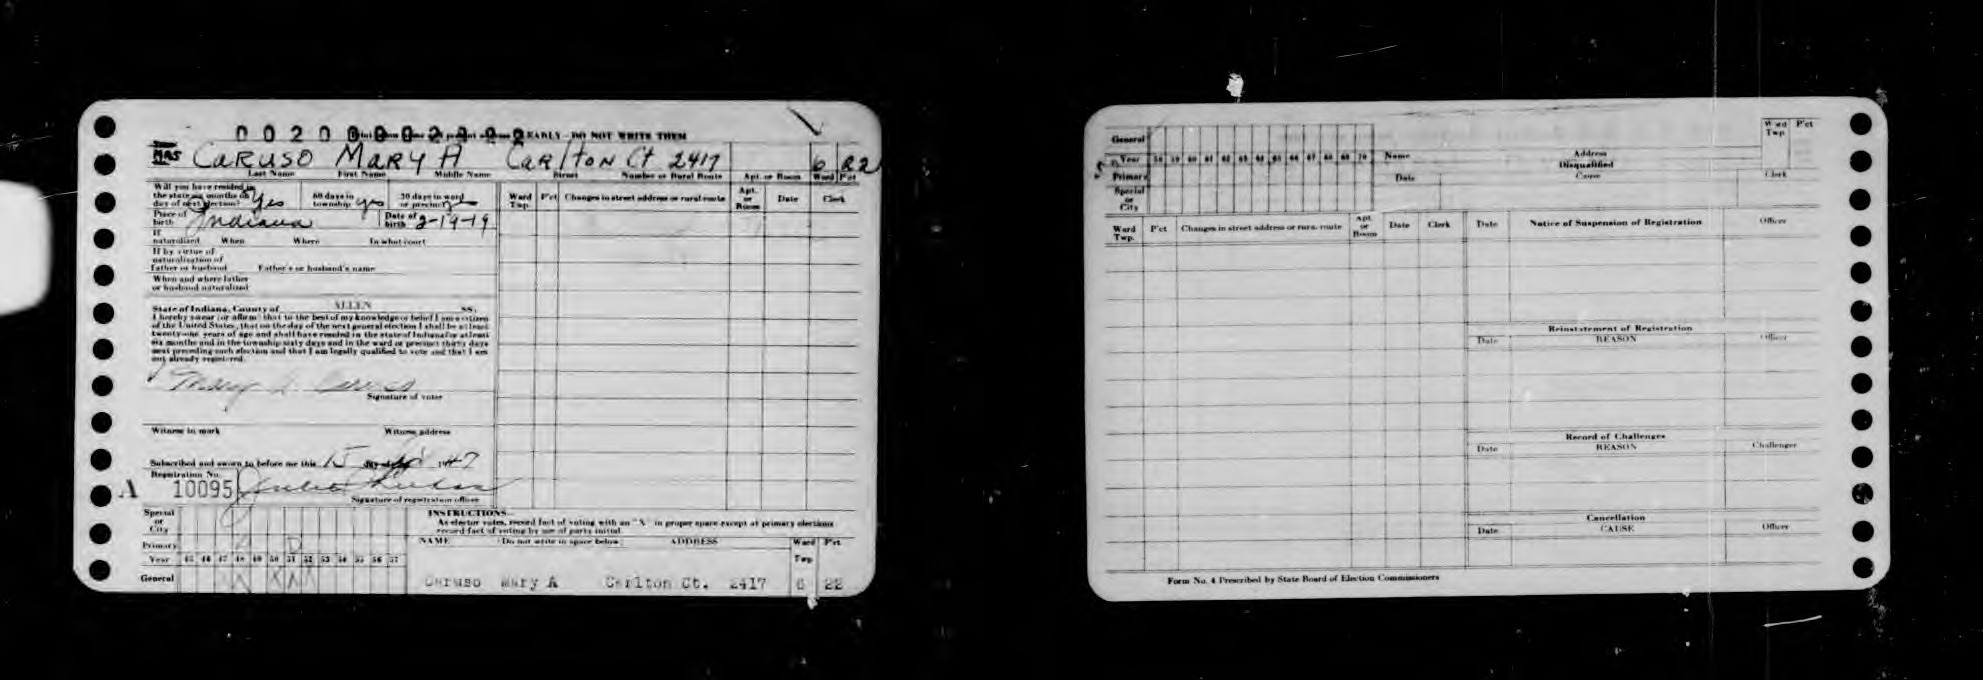 EARLY - DO NOT WRITE THEM
MRS CARUSO MARY A CARLTON Ct 2417 6 22
Last Name First Name Middle Name Street Number or Rural Route Apt. or Room Ward P'ct
Will you have resided in
the state six months on
day of next election? Yes
60 days in
township yes
30 days in ward
or precinct
Ward
Twp. P'ct Changes in street address or rural route Apt.
or
Room Date Clerk
Place of
birth Indiana Date of
birth 2-19-19
If
naturalized When Where In what court
If by virtue of
naturalization of
father or husband Father's or husband's name
When and where father
or husband naturalized
State of Indiana, County of ALLEN SS:
I hereby swear (or affirm) that to the best of my knowledge or belief I am a citizen
of the United States, that on the day of the next general election I shall be at least
twenty-one years of age and shall have resided in the state of Indiana for at least
six months and in the township sixty days and in the ward or precinct thirty days
next preceding such election and that I am legally qualified to vote and that I am
not already registered.
Mary A. Caruso
Signature of voter
Witness to mark Witness address
Subscribed and sworn to before me this 15 day of 1947
Registration No.
A 10095
Signature of registration officer
Special
or
City
Primary
Year 45 46 47 48 49 50 51 52 53 54 55 56 57
General
INSTRUCTIONS
As elector votes, record fact of voting with an "X" in proper space except at primary elections
record fact of voting by use of party initial.
NAME (Do not write in space below) ADDRESS Ward
Twp P'ct
Caruso Mary A Carlton Ct. 2417 6 22
General
Year 58 59 60 61 62 63 64 65 66 67 68 69 70
Primary
Special
or
City
Name Address Ward
Twp P'ct
Disqualified
Date Cause Clerk
Ward
Twp. P'ct Changes in street address or rural route Apt.
or
Room Date Clerk
Date Notice of Suspension of Registration Officer
Reinstatement of Registration
Date REASON Officer
Record of Challenges
Date REASON Challenger
Cancellation
Date CAUSE Officer
Form No. 4 Prescribed by State Board of Election Commissioners